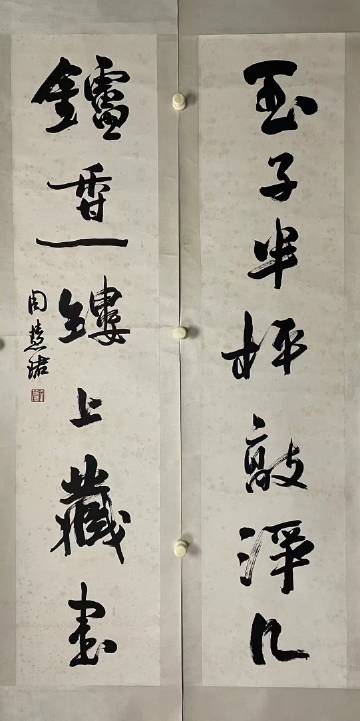 玉子半枰敲淨几
鑪香一縷上藏書
周慧珺